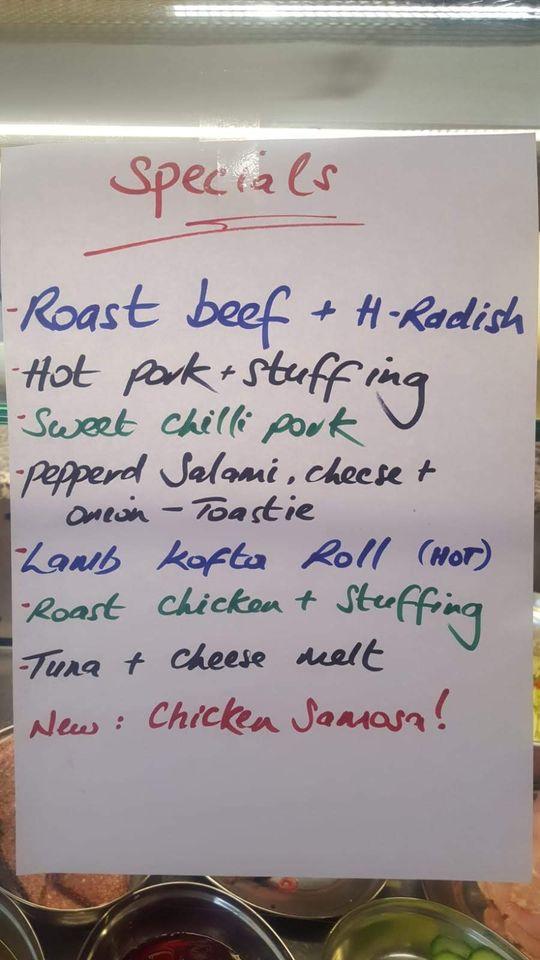 Specials
- Roast beef + H-Radish
- Hot pork + stuffing
- Sweet chilli pork
- pepperd Salami, cheese +
onion - Toastie
- Lamb kofta Roll (HOT)
- Roast chicken + Stuffing
- Tuna + cheese melt
New: Chicken Samosa!